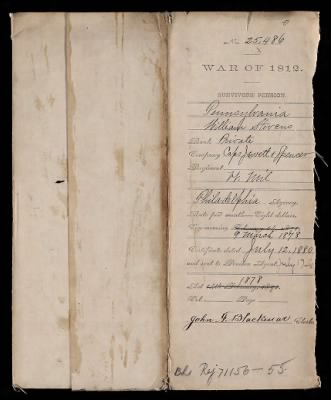 No. 25,486
WAR OF 1812.
SURVIVORS' PENSION.
Pennsylvania
William Stevens
Rank Private
Company Capts Jewett & Spencer
Regiment
Mil
Philadelphia Agency.
Rate per month Eight dollars.
Commencing February 14, 1871.
9 March 1878
Certificate dated July 12. 1880
and sent to Pension Agent
1878
Act 14th February, 1871.
Vol. Page
John G. Blackmar Clerk.
Bl Rej 71156-55